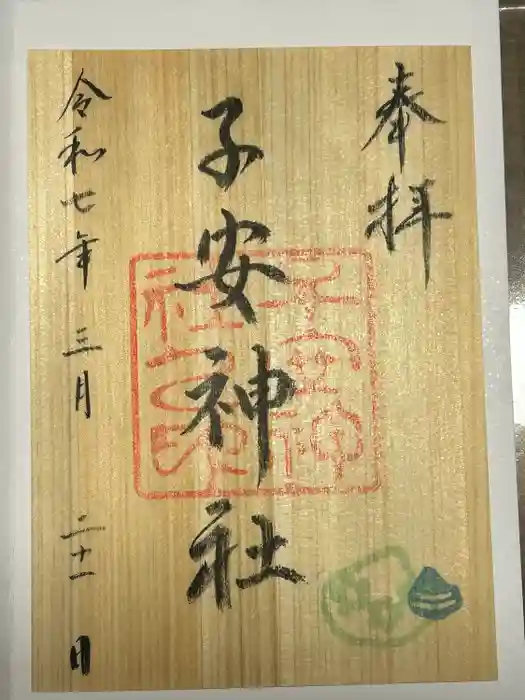 奉拝
子安神社
子安神
社之印
令和七年 三月 二十一日